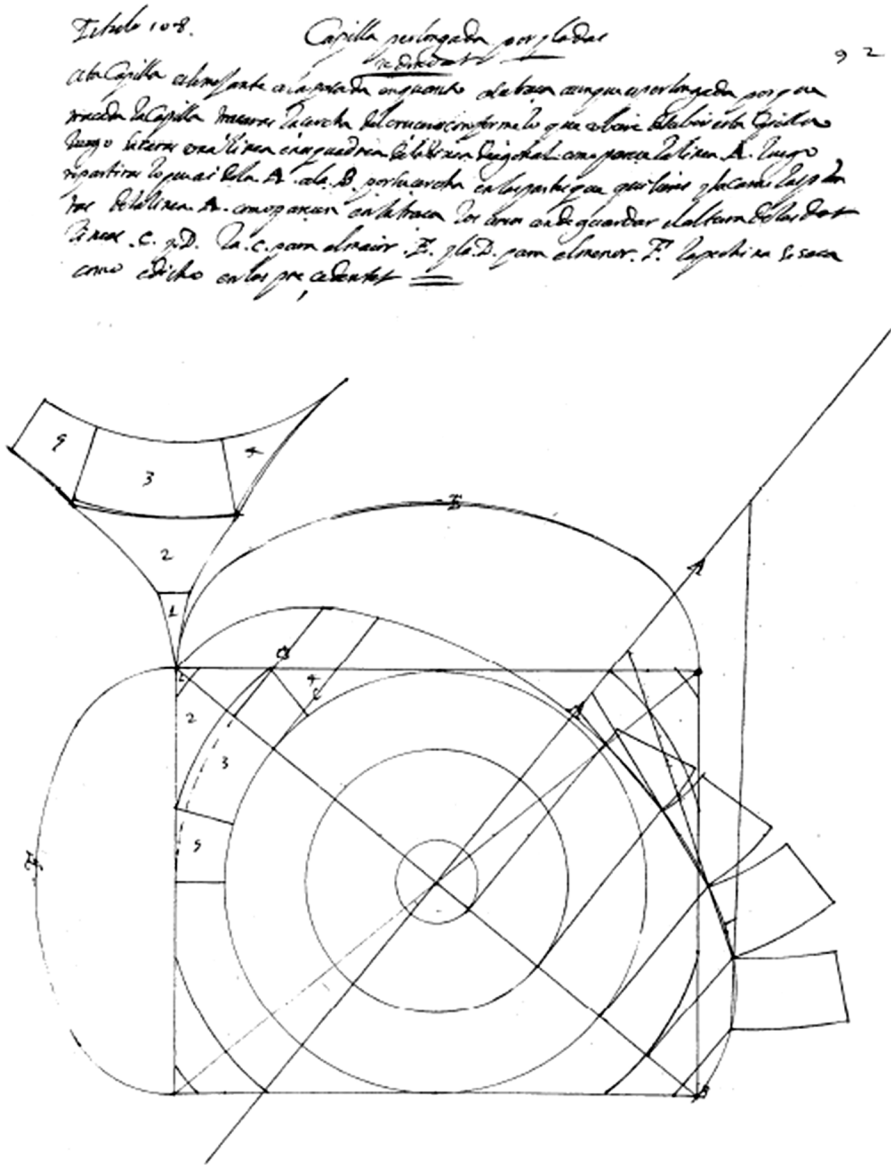 Titulo 108.
Capilla perlongada por yladas
redondas
92
esta Capilla es semejante a la pasada en quanto a la traça aunque es perlongada porque
traçada la Capilla traçaras la cercha del crucero conforme lo que ubiere de subir esta Capilla
luego sacaras una linea en quadria de la linea diagonal como parece la linea A. luego
repartiras lo que ai de la A. a la B. por su cercha en las partes que quisieres y sacaras las plan
tas de la linea A. como parecen en la traça los arcos an de guardar el altura de las dos
lineas .C. y .D. la .C. para el maior .E. y la .D. para el menor .F. la pechina se saca
como e dicho en las precedentes
3
4
E
2
1
A
4
2
3
5
F
B